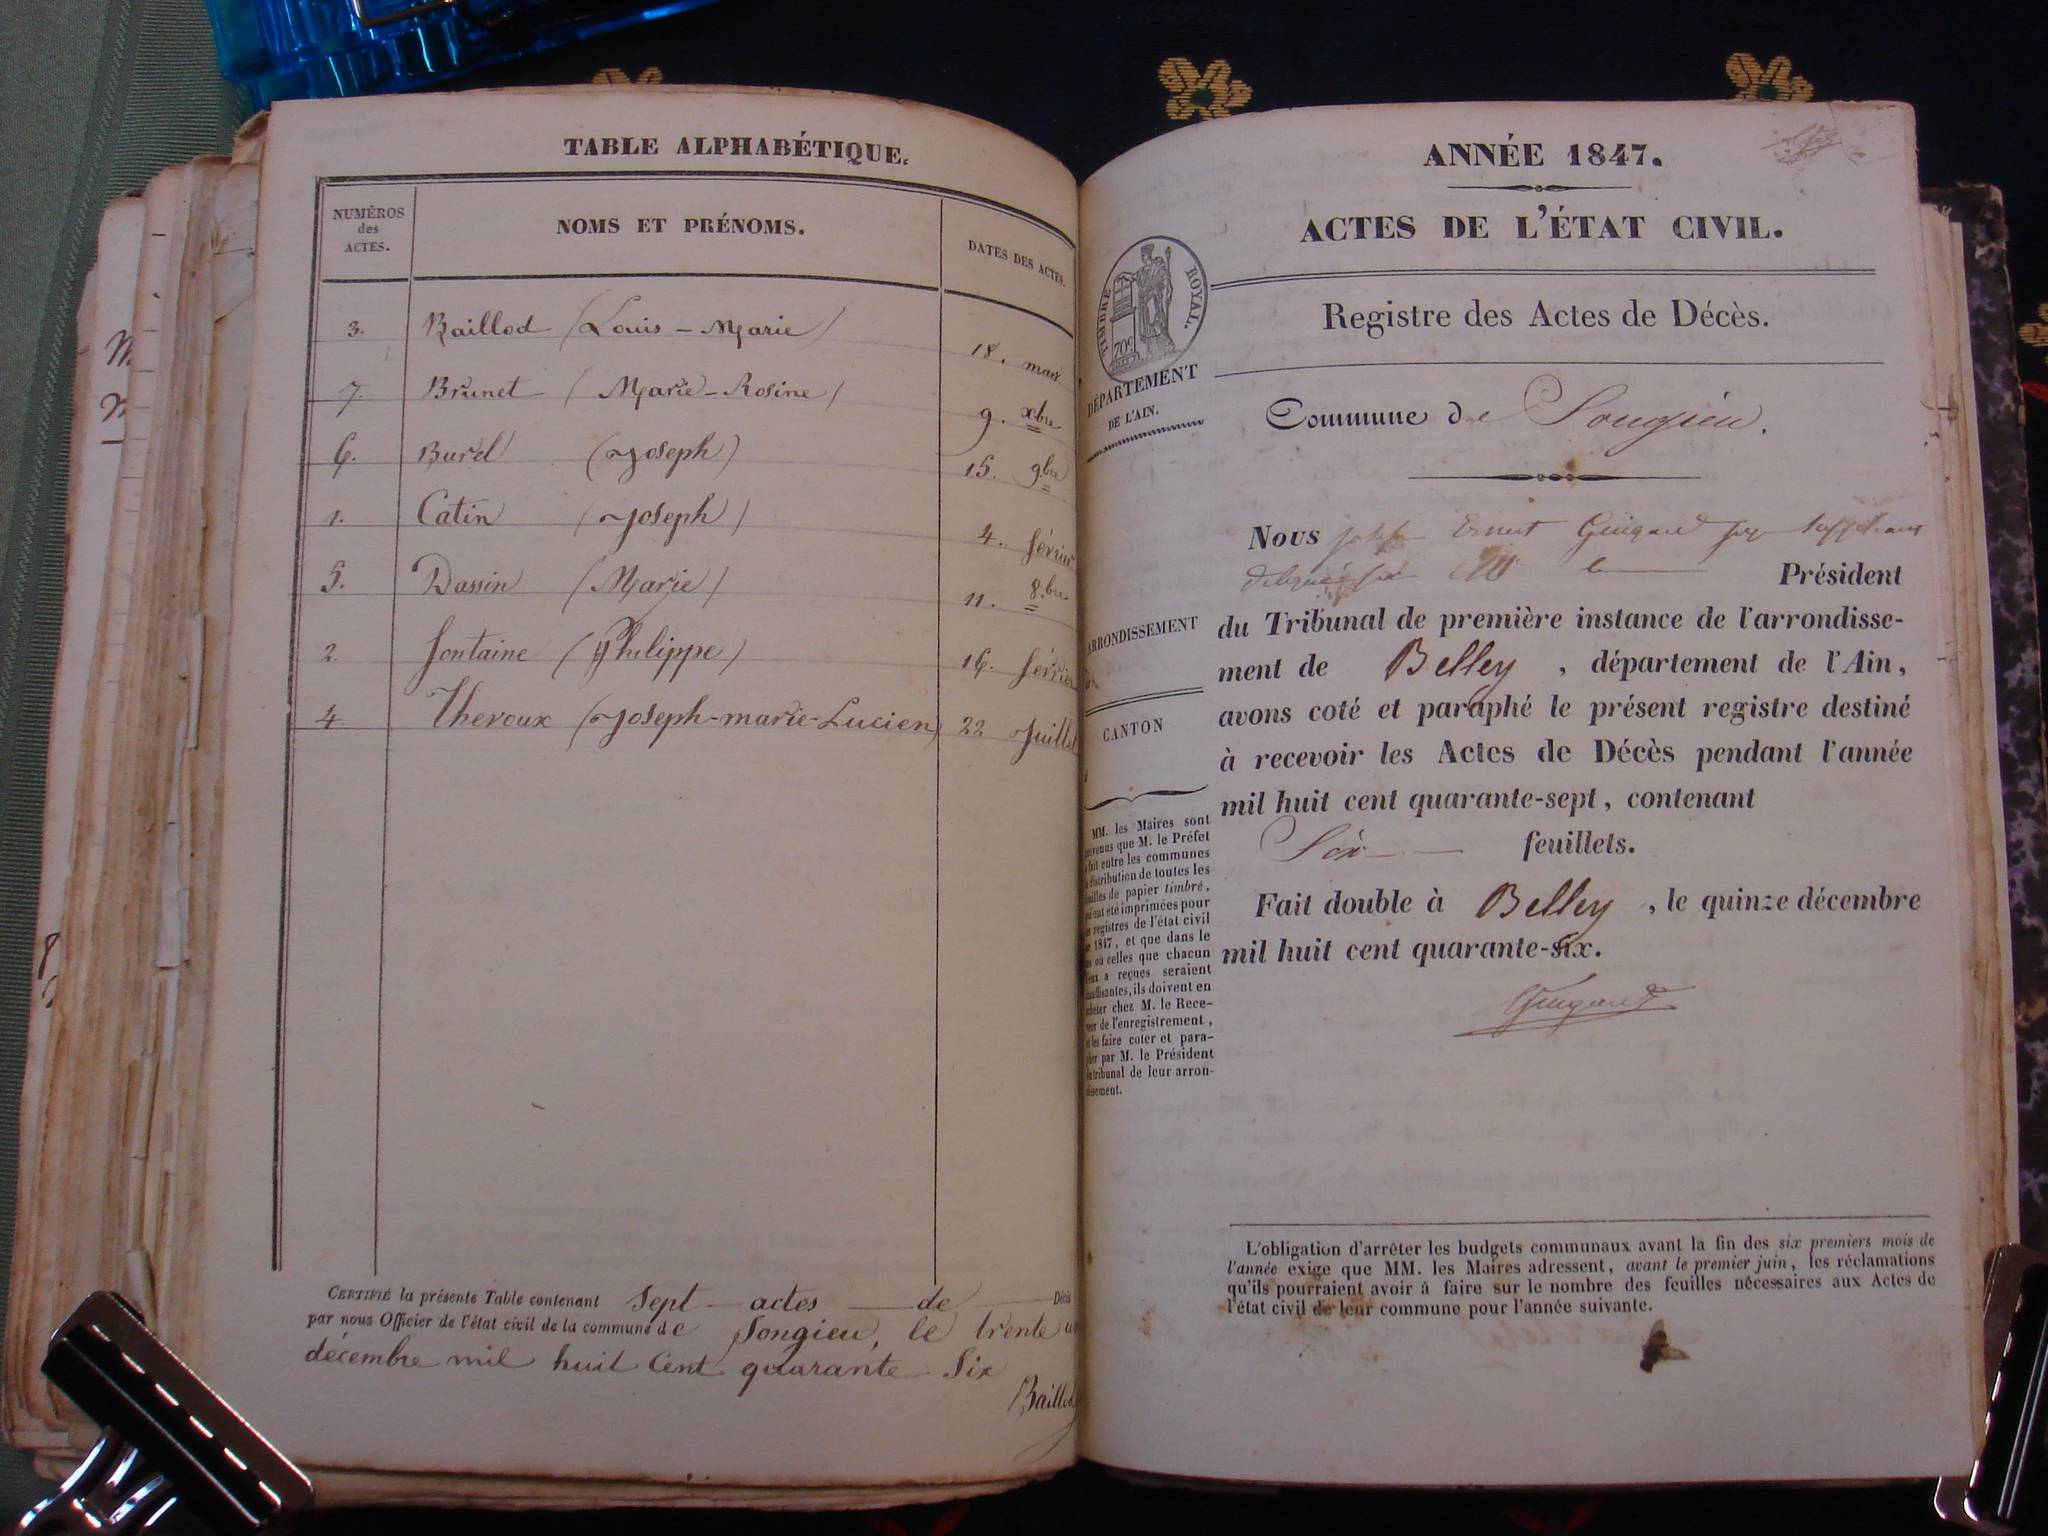 TABLE ALPHABÉTIQUE.
NUMÉROS
des
ACTES.
NOMS ET PRÉNOMS.
DATES DES ACTES.
3. Baillod (Louis-Marie) 18. mars
7. Brunet (Marie-Rosine) 9. xbre
6. Burel (Joseph) 15. 9bre
1. Catin (Joseph) 4. février
5. Dassin (Marie) 11. 8.bre
2. fontaine (Philippe) 16. février
4 Theroux (Joseph-marie-Lucien) 22 Juillet
CERTIFIÉ la présente Table contenant sept actes de Décès
par nous Officier de l'état civil de la commune de Songieu, le trente un
décembre mil huit Cent quarante Six
Baillod
ANNÉE 1847.
ACTES DE L'ÉTAT CIVIL.
TIMBRE ROYAL.
70c
Registre des Actes de Décès.
DÉPARTEMENT
DE L'AIN.
Commune de Songieu.
Nous joseph Ernest Guigard juge Suppléant
délégué par Mr le Président
du Tribunal de première instance de l'arrondisse-
ment de Belley, département de l'Ain,
avons coté et paraphé le présent registre destiné
à recevoir les Actes de Décès pendant l'année
mil huit cent quarante-sept, contenant
Six feuillets.
Fait double à Belley, le quinze décembre
mil huit cent quarante-six.
Guigard
ARRONDISSEMENT
CANTON
MM. les Maires sont
prévenus que M. le Préfet
a fait entre les communes
la distribution de toutes les
feuilles de papier timbré,
qui ont été imprimées pour
les registres de l'état civil
de 1847, et que dans le
cas où celles que chacun
d'eux a reçues seraient
insuffisantes, ils doivent en
acheter chez M. le Rece-
veur de l'enregistrement,
et les faire coter et para-
pher par M. le Président
du tribunal de leur arron-
dissement.
L'obligation d'arrêter les budgets communaux avant la fin des six premiers mois de
l'année exige que MM. les Maires adressent, avant le premier juin, les réclamations
qu'ils pourraient avoir à faire sur le nombre des feuilles nécessaires aux Actes de
l'état civil de leur commune pour l'année suivante.